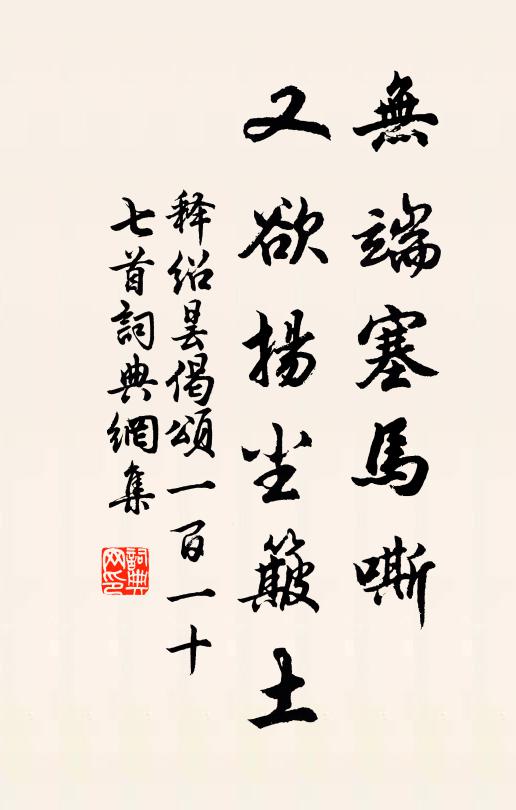 無端塞馬嘶
又欲揚尘簸土
释绍昙偈頌一百一十
七首詞典網集
詞典网印